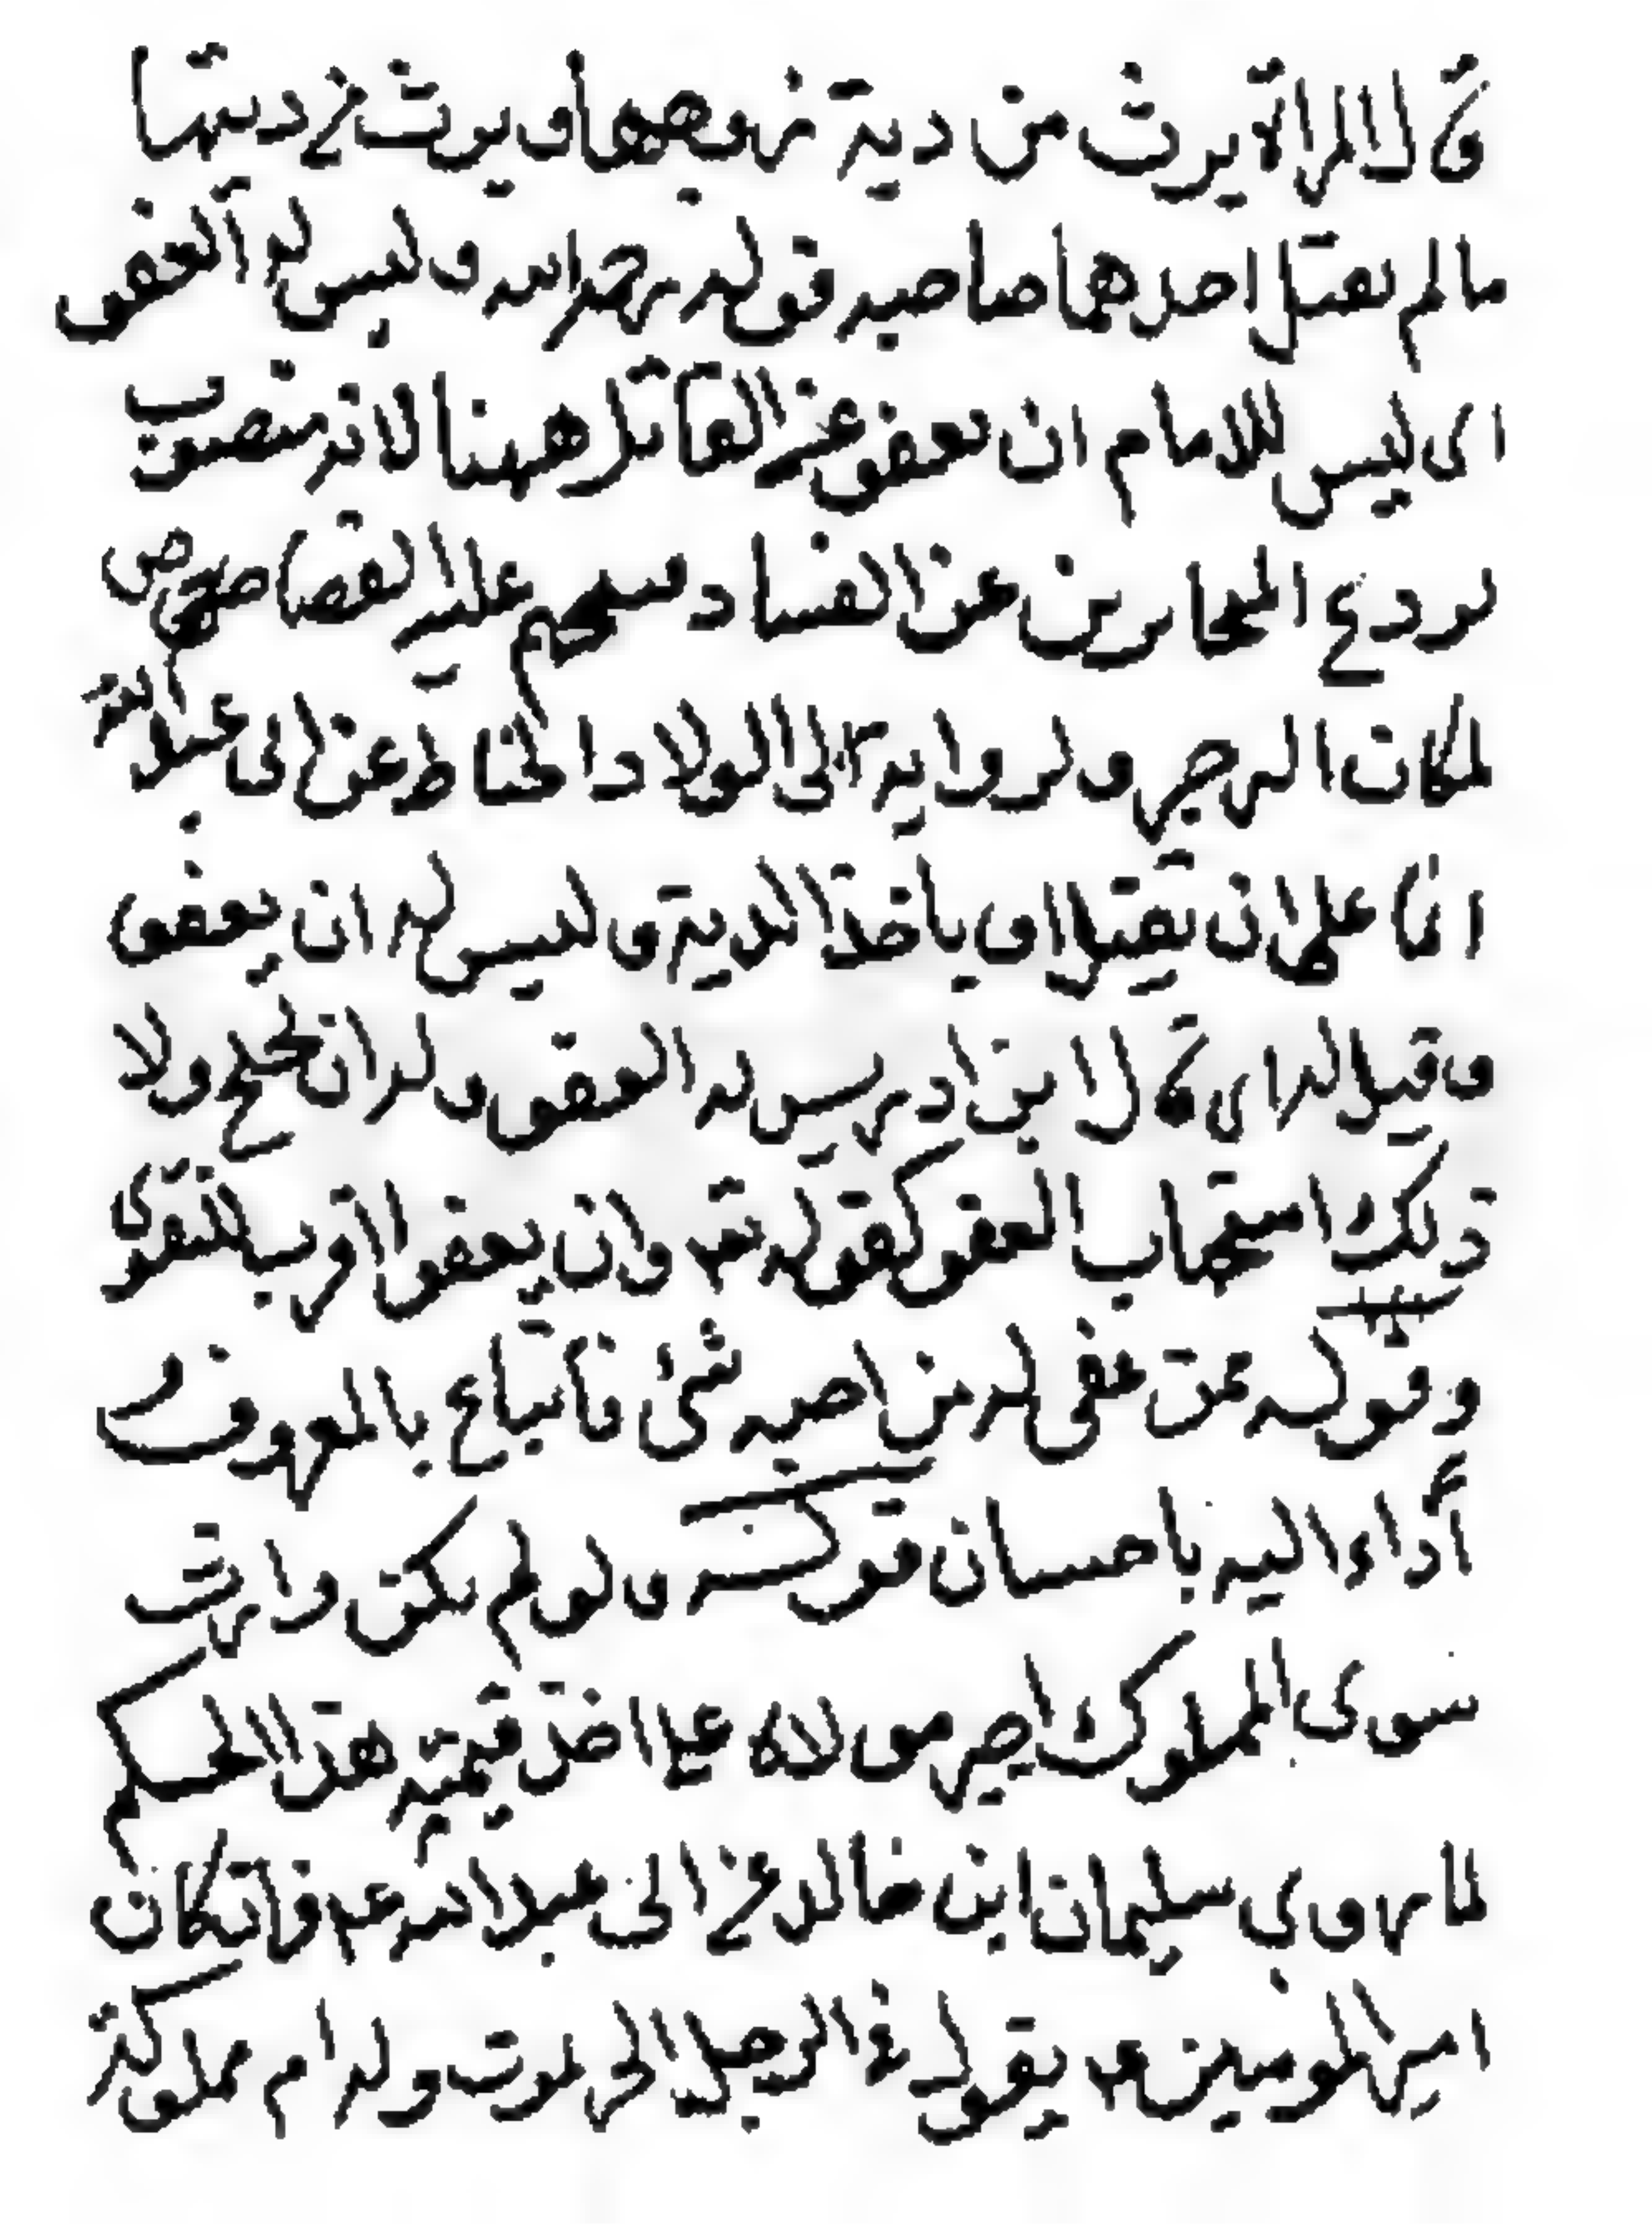 قال المراة يرث من دية زوجها ويرث في ديتها
مالم يقتل احدهما صاحبه قوله رحمه الله وليس له العفو
اى ليس للامام ان يعفو عن القاتل ههنا لانه منصوب
لردع المحاربين عن الفساد عليه القصاص
لمكان الزجر ولرواية ابى الولاد الحناط عن ابى عبدالله
انما على ان يقتل او ياخذ الدية وليس له ان يعفو
وقيل الراى قال ابن ادريس له العفو وله ان ولا
ذلك استحباب العفو كقوله تعه وان يعفو اقرب للتقوى
وقوله فمن عفى له من اخيه شئ فاتباع بالمعروف
أداء اليه باحسان قوله ولو لم يكن وارث
سوى المملوك اجبر مولاه على اخذ قيمته هذا الحكم
لما روى سليمان ابن خالد عن ابى عبدالله عم قال كان
امير المومنين عم يقول فى الرجل الحر يموت وله ام مملوكة